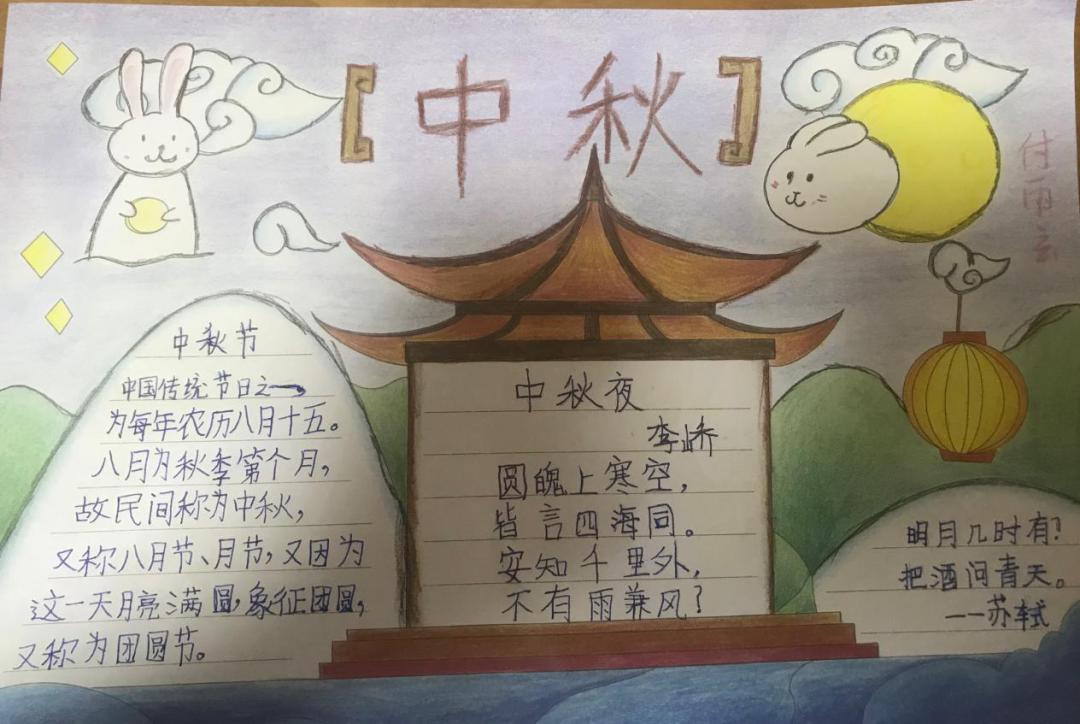 【中秋】
付雨云
中秋节
中国传统节日之一,
为每年农历八月十五。
八月为秋季第个月,
故民间称为中秋,
又称八月节、月节,又因为
这一天月亮满圆,象征团圆,
又称为团圆节。
中秋夜
李峤
圆魄上寒空,
皆言四海同。
安知千里外,
不有雨兼风?
明月几时有?
把酒问青天。
——苏轼